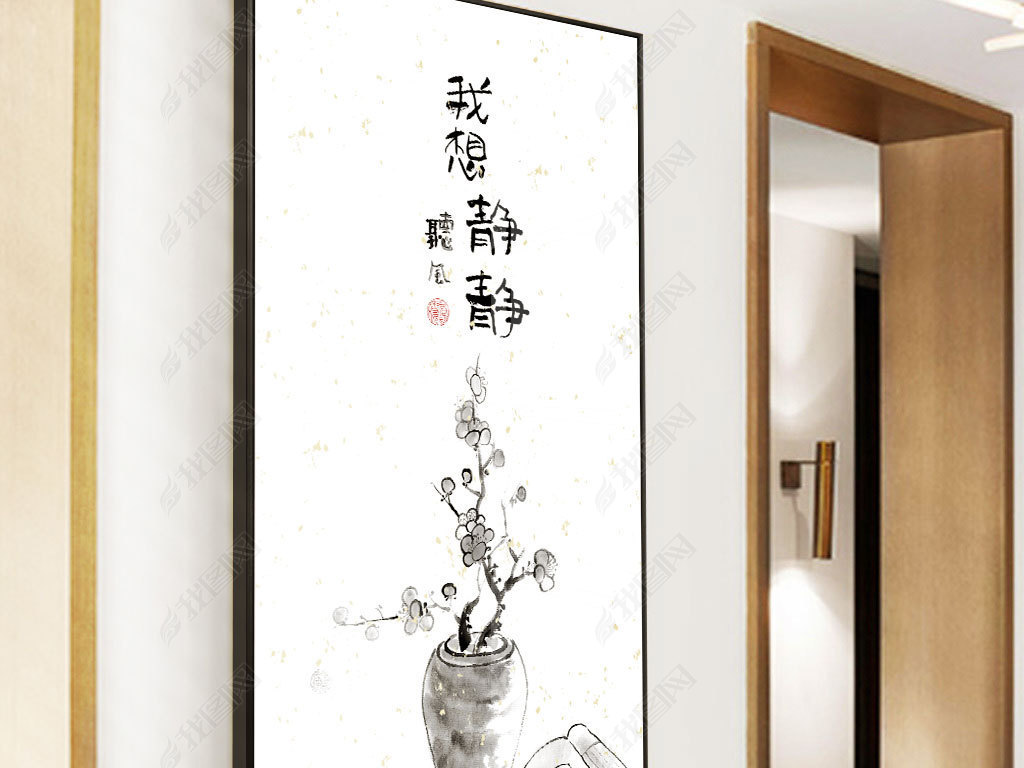 我想
静静
聽风